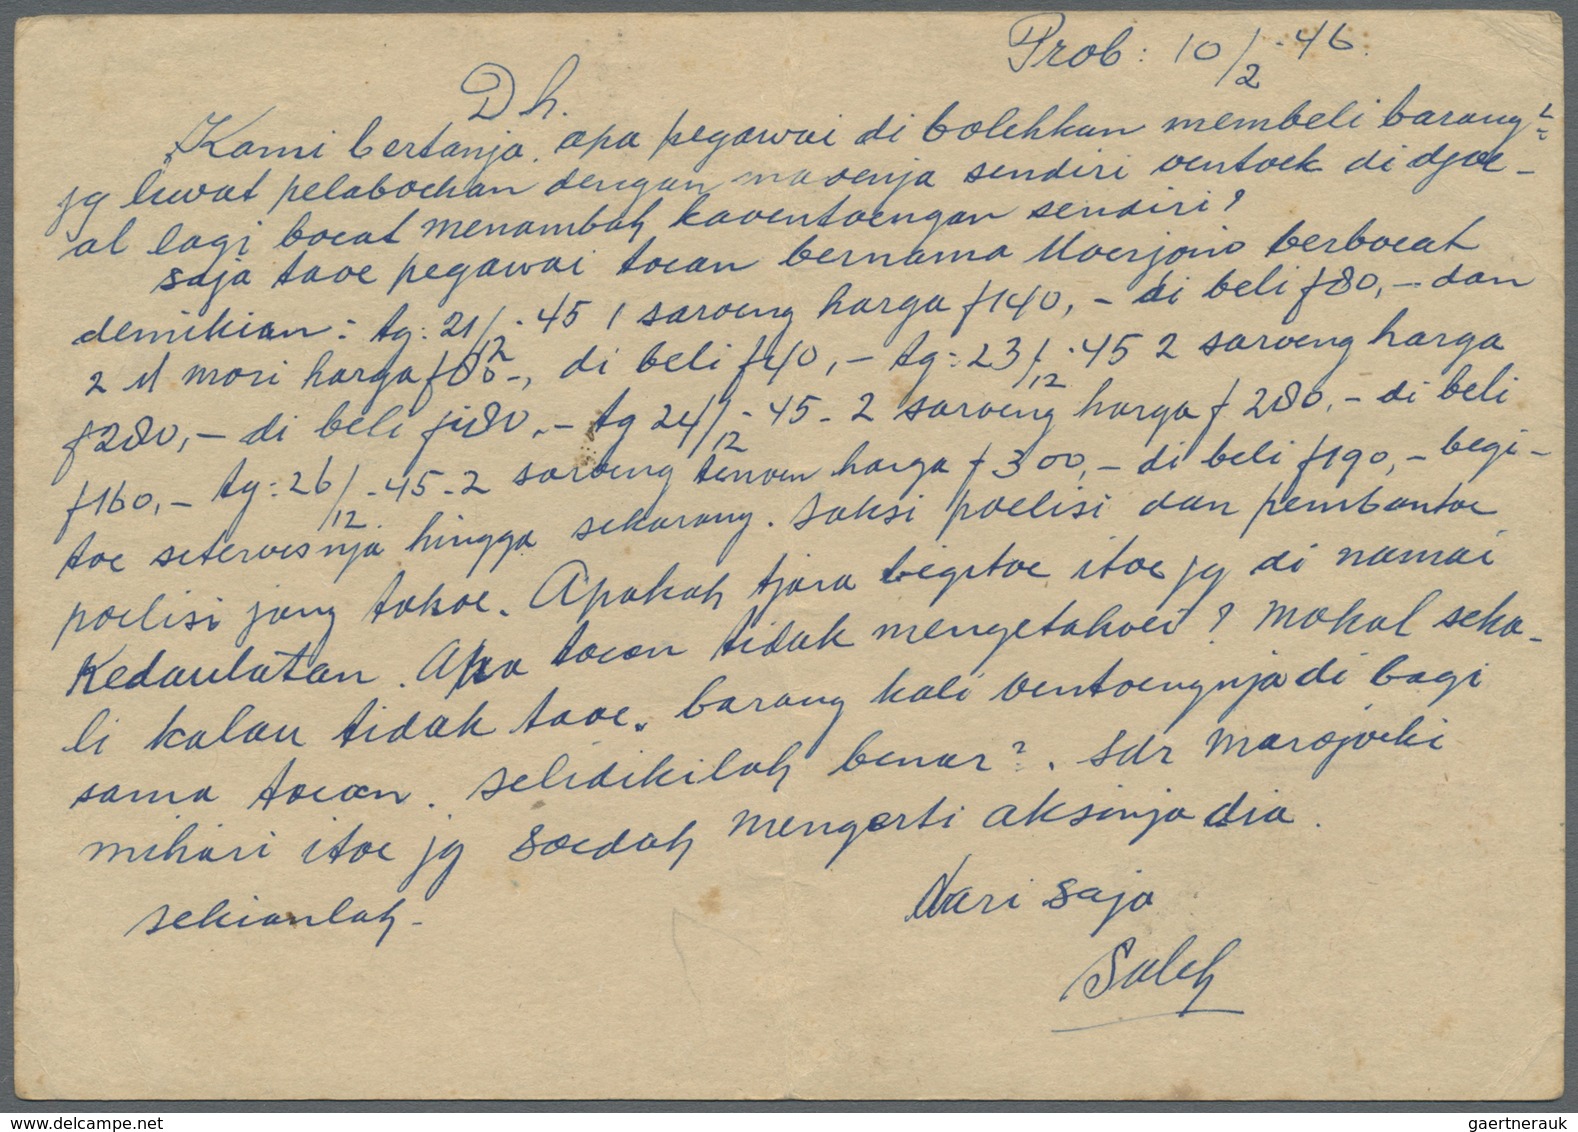 Prob: 10/2-46.
Dh.
Kami bertanja. apa pegawai di bolehkan membeli barang²
jg liwat pelaboehan dengan maoenja sendiri oentoek di djoe-
al lagi boeat menambah kaoentoengan sendiri?
saja taoe pegawai toean bernama Moerjono berboeat
demikian: tg: 21/12-45 1 saroeng harga f140,- di beli f80,- dan
2 M mori harga f80,- di beli f40,- tg: 23/12-45 2 saroeng harga
f280,- di beli f180,- tg 24/12-45-2 saroeng harga f280,- di beli
f160,- tg: 26/12-45-2 saroeng tenoen harga f300,- di beli f190,- begi-
toe seteroesnja hingga sekarang. saksi poelisi dan pembantoe
poelisi jang takoe. Apakah tjara begitoe itoe jg di namai
Kedaulatan. Apa toean tidak mengetahoei? mokal seka-
li kalau tidak taoe. barang kali oentoengnja di bagi
sama toean. selidikilah benar². sdr
mihari itoe jg soedah mengerti aksinja dia.
sekianlah-
dari saja
Saleh
gaertnerauk